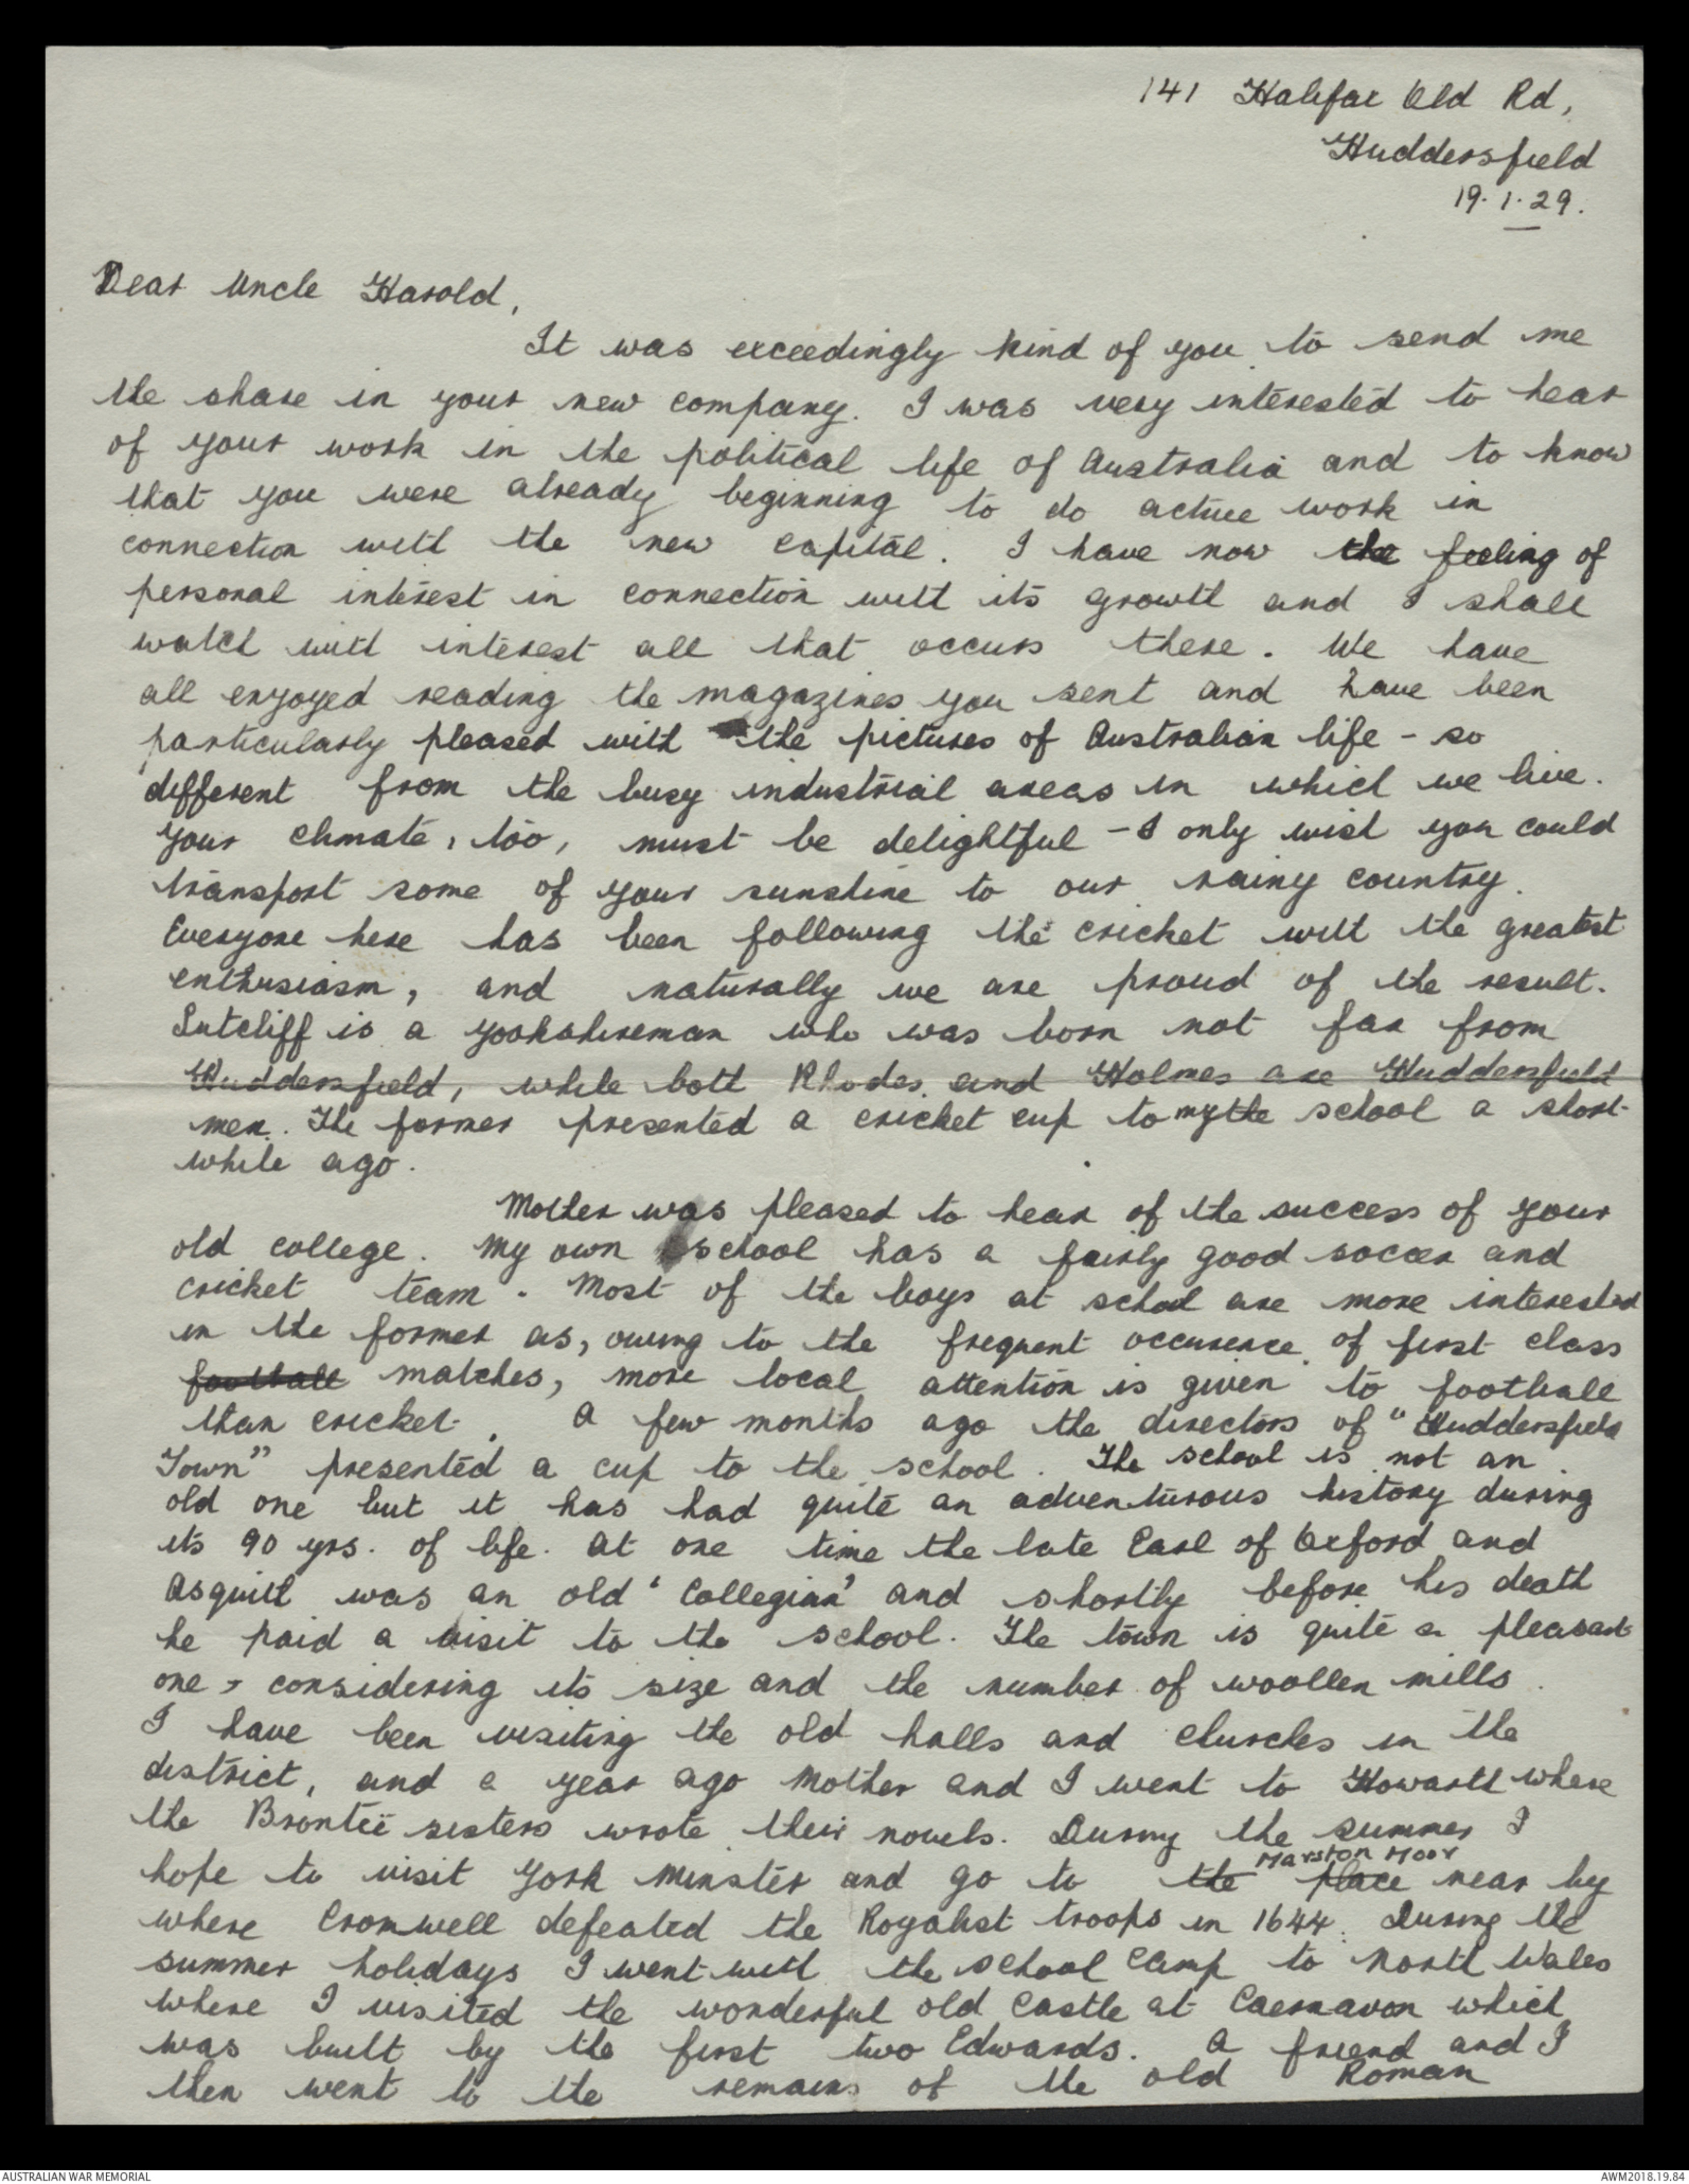 141 Halifax Old Rd,
Huddersfield
19.1.29.
Dear Uncle Harold,
It was exceedingly kind of you to send me
the share in your new company. I was very interested to hear
of your work in the political life of Australia and to know
that you were already beginning to do active work in
connection with the new capital. I have now the feeling of
personal interest in connection with its growth and I shall
watch with interest all that occurs there. We have
all enjoyed reading the magazines you sent and have been
particularly pleased with the pictures of Australian life - so
different from the busy industrial areas in which we live.
Your climate, too, must be delightful - I only wish you could
transport some of your sunshine to our rainy country.
Everyone here has been following the cricket with the greatest
enthusiasm, and naturally we are proud of the result.
Sutcliff is a Yorkshireman who was born not far from
Huddersfield, while both Rhodes and Holmes are Huddersfield
men. The former presented a cricket cup to my the school a short
while ago.
Mother was pleased to hear of the success of your
old college. My own school has a fairly good soccer and
cricket team. Most of the boys at school are more interested
in the former as, owing to the frequent occurence of first class
football matches, more local attention is given to football
than cricket. A few months ago the directors of "Huddersfield
Town" presented a cup to the school. The school is not an
old one but it has had quite an adventurous history during
its 90 yrs. of life. At one time the late Earl of Oxford and
Asquith was an old 'Collegian' and shortly before his death
he paid a visit to the school. The town is quite a pleasant
one - considering its size and the number of woollen mills.
I have been visiting the old halls and churches in the
district, and a year ago Mother and I went to Howarth where
the Brontëe sisters wrote their novels. During the summer I
hope to visit York Minster and go to the place Marston Moor near by
where Cromwell defeated the Royalist troops in 1644. During the
summer holidays I went with the school camp to North Wales
where I visited the wonderful old castle at Caernavon which
was built by the first two Edwards. A friend and I
then went to the remains of the old Roman
AUSTRALIAN WAR MEMORIAL
AWM2018.19.84